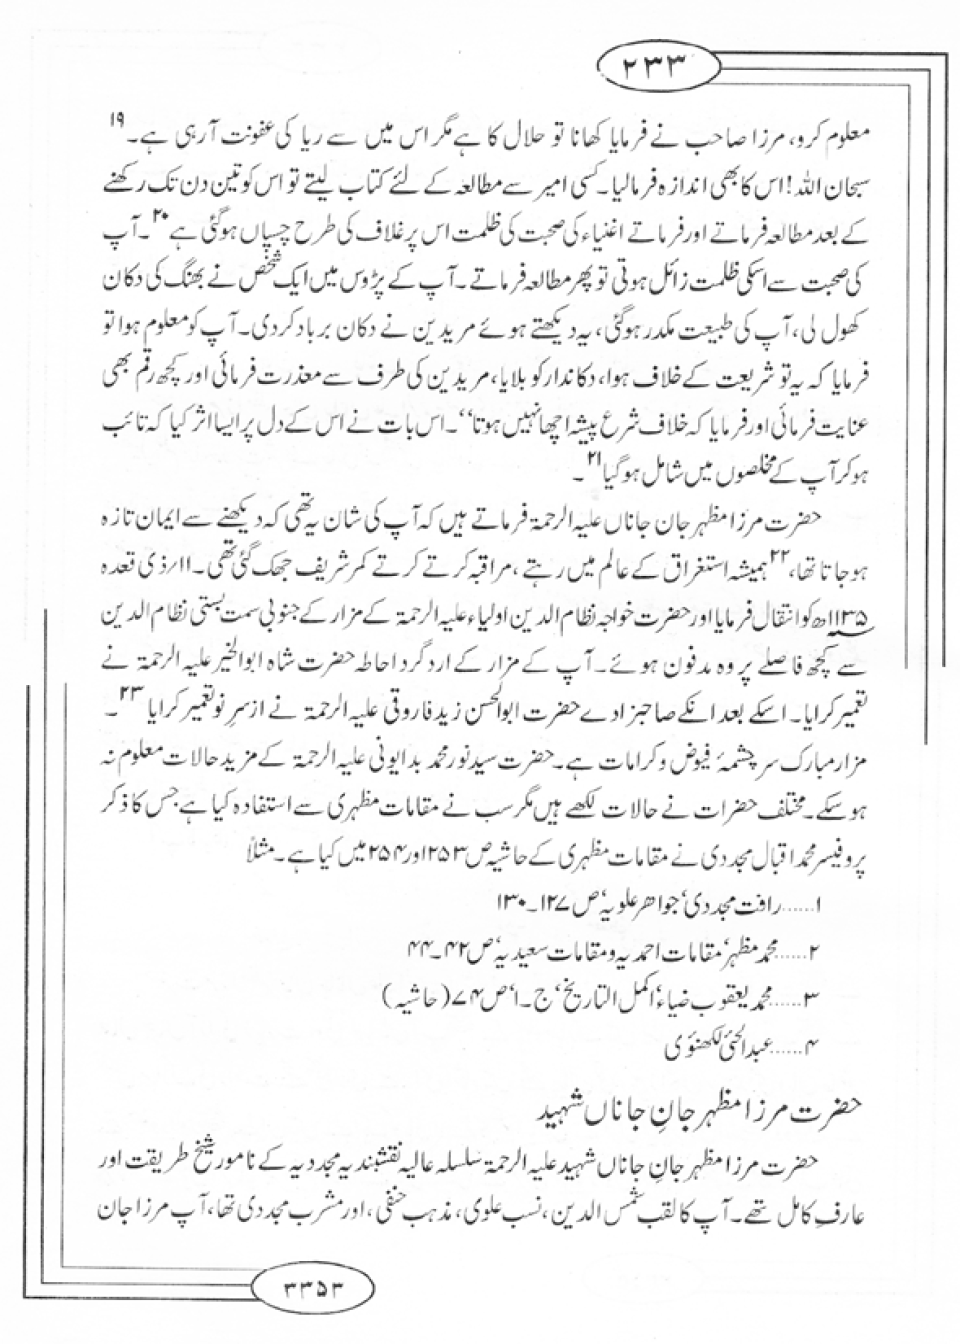 ۲۳۳
معلوم کرو، مرزا صاحب نے فرمایا کھانا تو حلال کا ہے مگر اس میں سے ریا کی عفونت آرہی ہے۔ ۱۹
سبحان اللہ! اس کا بھی اندازہ فرمالیا۔ کسی امیر سے مطالعہ کے لئے کتاب لیتے تو اس کو تین دن تک رکھنے
کے بعد مطالعہ فرماتے اور فرماتے اغنیاء کی صحبت کی ظلمت اس پر غلاف کی طرح چسپاں ہوگئی ہے ۲۰۔ آپ
کی صحبت سے اسکی ظلمت زائل ہوتی تو پھر مطالعہ فرماتے۔ آپ کے پڑوس میں ایک شخص نے بھنگ کی دکان
کھول لی، آپ کی طبیعت مکدر ہوگئی، یہ دیکھتے ہوئے مریدین نے دکان برباد کردی۔ آپ کو معلوم ہوا تو
فرمایا کہ یہ تو شریعت کے خلاف ہوا، دکاندار کو بلایا، مریدین کی طرف سے معذرت فرمائی اور کچھ رقم بھی
عنایت فرمائی اور فرمایا کہ خلاف شرع پیشہ اچھا نہیں ہوتا‘‘۔ اس بات نے اس کے دل پر ایسا اثر کیا کہ تائب
ہوکر آپ کے مخلصوں میں شامل ہوگیا ۲۱۔
حضرت مرزا مظہر جان جاناں علیہ الرحمۃ فرماتے ہیں کہ آپ کی شان یہ تھی کہ دیکھنے سے ایمان تازہ
ہوجاتا تھا، ۲۲ ہمیشہ استغراق کے عالم میں رہتے، مراقبہ کرتے کرتے کمر شریف جھک گئی تھی۔ ۱۱/ ذی قعدہ
۱۱۳۵ھ کو انتقال فرمایا اور حضرت خواجہ نظام الدین اولیاء علیہ الرحمۃ کے مزار کے جنوبی سمت بستی نظام الدین
سے کچھ فاصلے پر وہ مدفون ہوئے۔ آپ کے مزار کے ارد گرد احاطہ حضرت شاہ ابوالخیر علیہ الرحمۃ نے
تعمیر کرایا۔ اسکے بعد انکے صاحبزادے حضرت ابوالحسن زید فاروقی علیہ الرحمۃ نے ازسرِ نو تعمیر کرایا ۲۳۔
مزار مبارک سرچشمۂ فیوض وکرامات ہے۔ حضرت سید نور محمد بدایونی علیہ الرحمۃ کے مزید حالات معلوم نہ
ہوسکے۔ مختلف حضرات نے حالات لکھے ہیں مگر سب نے مقامات مظہری سے استفادہ کیا ہے جس کا ذکر
پروفیسر محمد اقبال مجددی نے مقامات مظہری کے حاشیہ ص ۲۵۳ اور ۲۵۴ میں کیا ہے۔ مثلاً
۱......رافت مجددی‘ جواهر علویہ‘ ص ۱۲۷۔۱۳۰
۲......محمد مظہر‘ مقامات احمدیہ ومقامات سعیدیہ‘ ص ۴۲۔۴۴
۳......محمد یعقوب ضیاء‘ اکمل التاریخ‘ ج۔ا‘ ص ۷۴ (حاشیہ)
۴......عبدالحئی لکھنؤی
حضرت مرزا مظہر جانِ جاناں شہید
حضرت مرزا مظہر جانِ جاناں شہید علیہ الرحمۃ سلسلہ عالیہ نقشبندیہ مجددیہ کے نامور شیخ طریقت اور
عارفِ کامل تھے۔ آپ کا لقب شمس الدین، نسب علوی، مذہب حنفی، اور مشرب مجددی تھا، آپ مرزا جان
۳۳۵۳